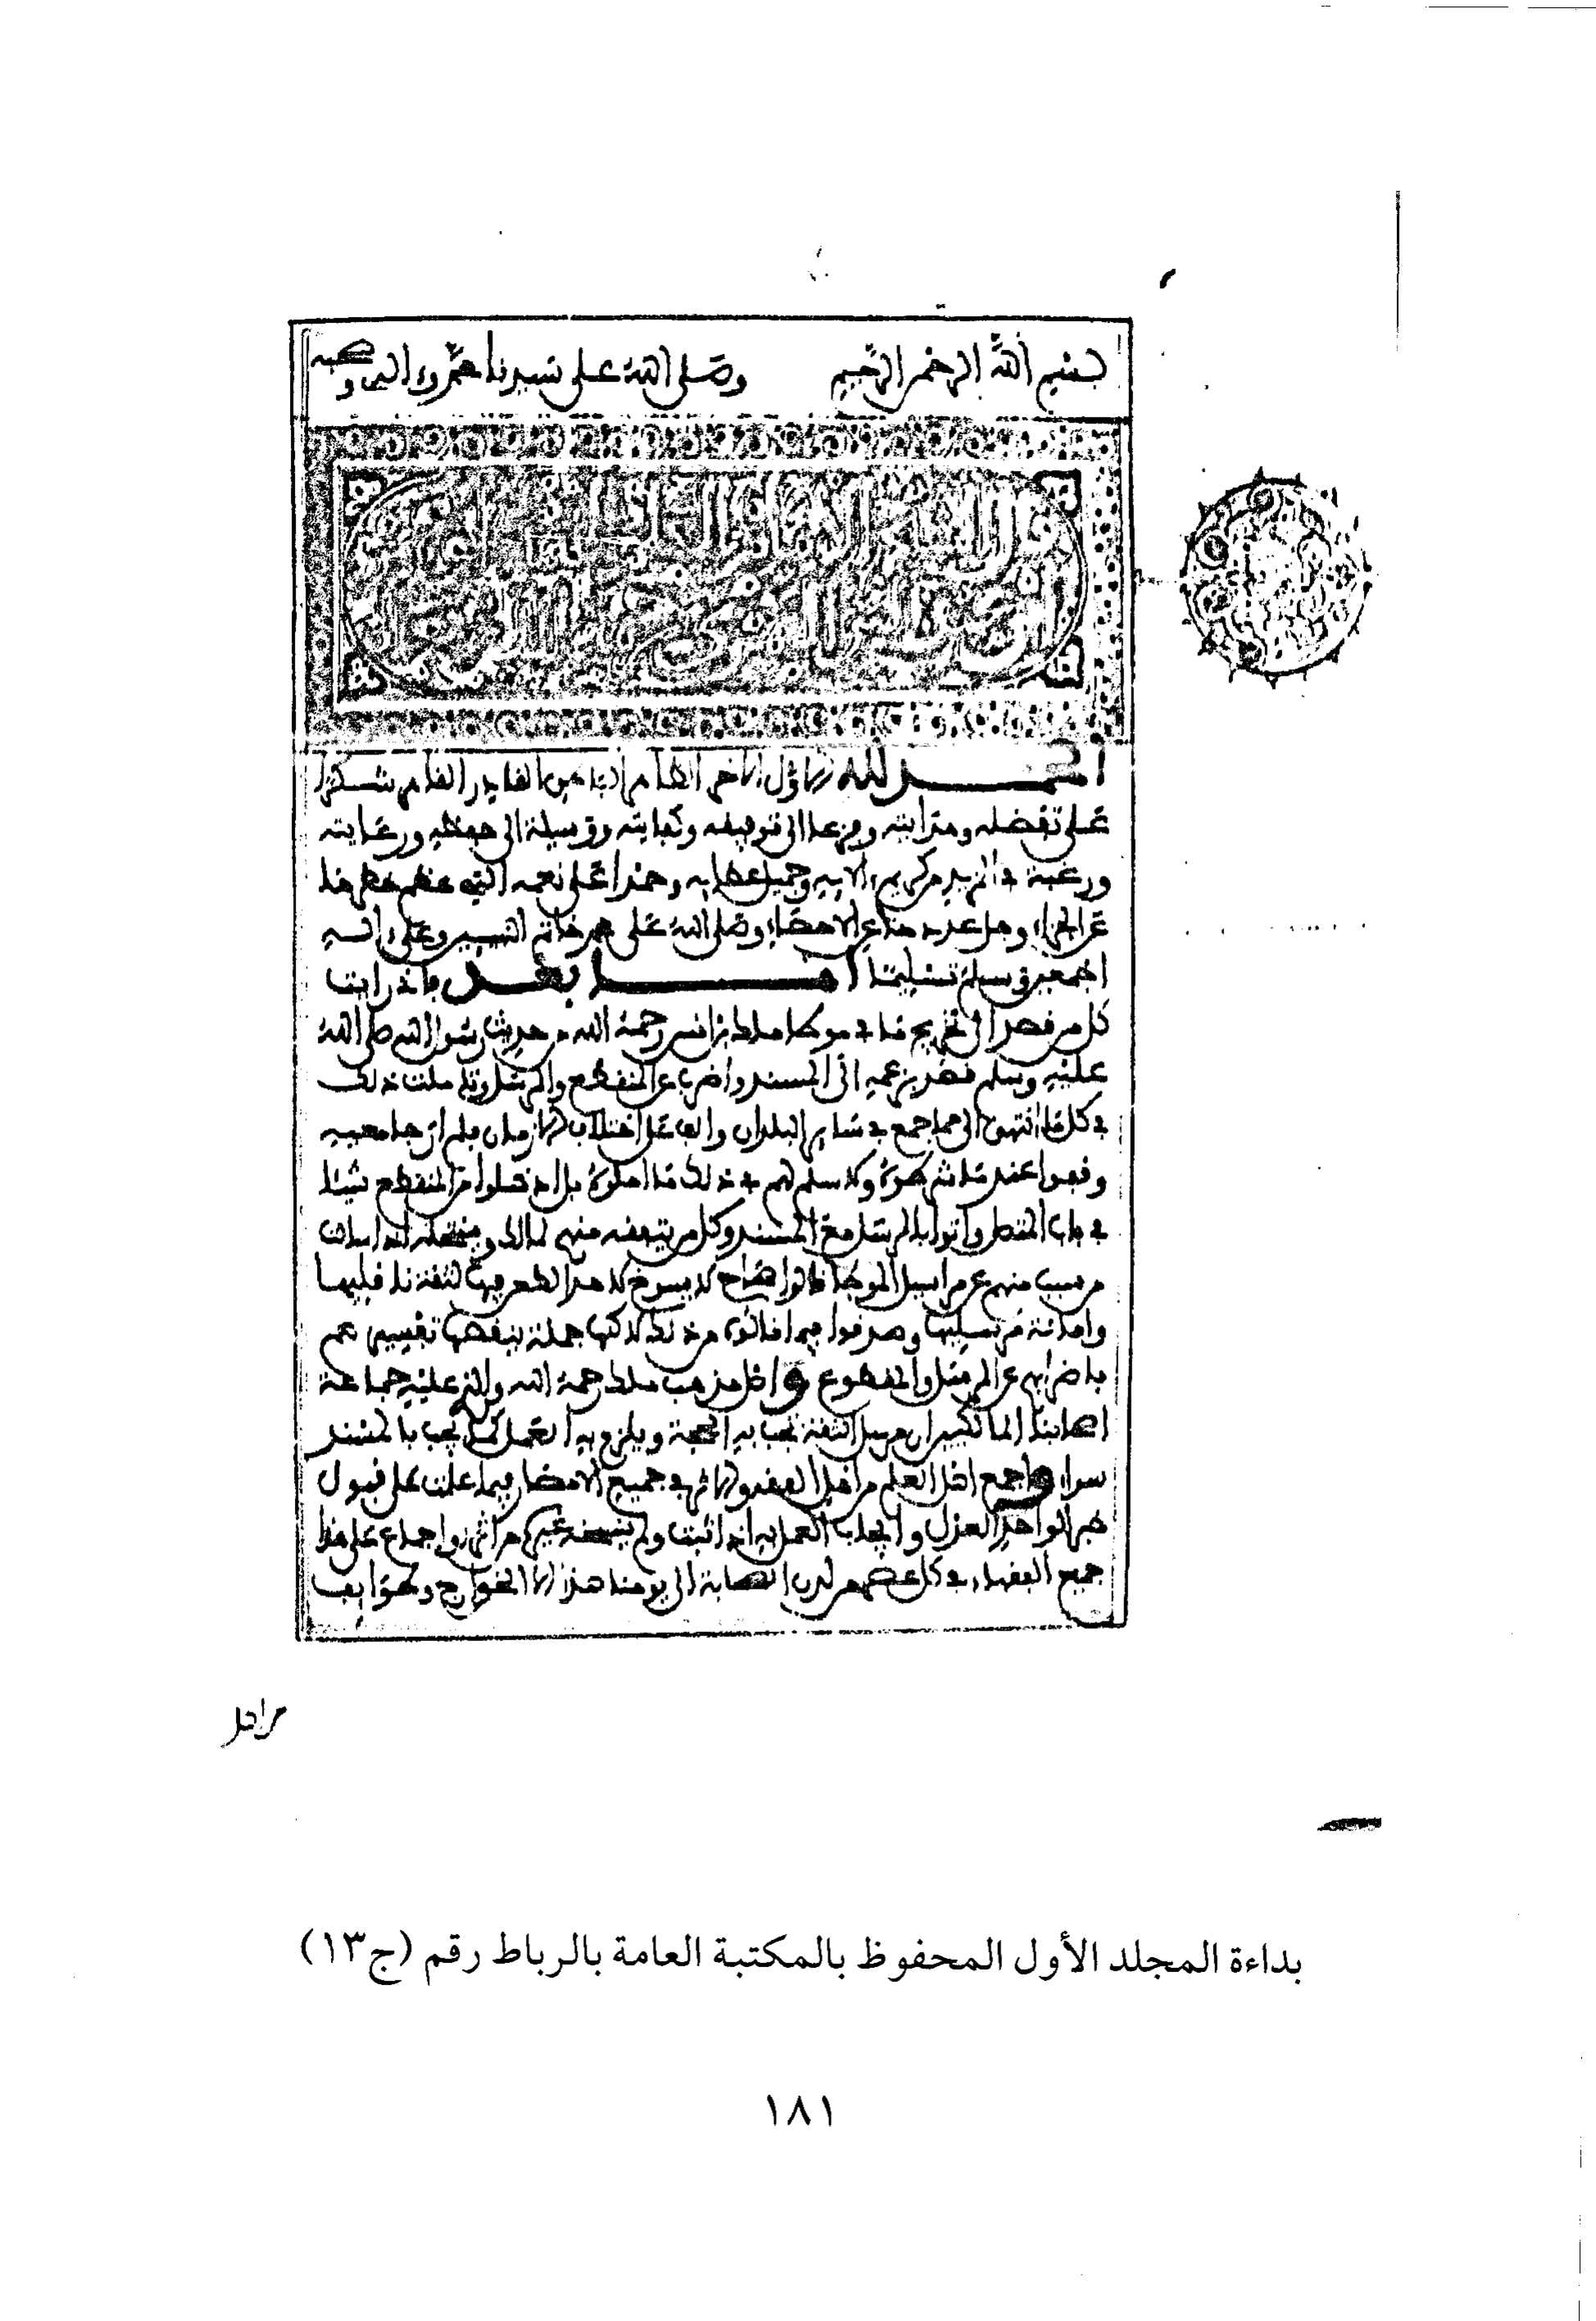 بسم الله الرحمن الرحيم وصلى الله على سيدنا محمد وءاله وصحبه
الحمد لله الاول الاخر الظاهر الباطن القادر القاهر شكرا
على تفضله وهدايته وفزعا الى توفيقه وكفايته ووسيلة الى حفظه ورعايته
ورغبة في المزيد من كريم ءالايه وجميل بلايه وحمدا على نعمه التي عظم خطرها
عن الجزاء وجل عددها عن الاحصاء وصلى الله على محمد خاتم النبيين وعلى ءاله
اجمعين وسلم تسليما اما بعد فاني رايت
كل من قصد الى تخريج ما في موطا ملك بن انس رحمه الله من حديث رسول الله صلى الله
عليه وسلم قصد بزعمه الى المسند واضرب عن المنقطع والمرسل وتاملت ذلك
في كل ما انتهى الي مما جمع في ساير البلدان والف على اختلاف الازمان فلم ار جامعيه
وقفوا عند ما شرطوه ولا سلم لهم في ذلك ما املوه بل ادخلوا من المنقطع شيئا
في باب المتصل واتوا بالمرسل مع المسند وكل من يتفقه منهم لمالك وينتحله اذا سالت
من سيت منهم عن مراسيل الموطا قالوا صحاح لا يسوغ لاحد الطعن فيها لثقة ناقليها
وامانة مرسليها وصدقوا فيما قالوه من ذلك لاكنها جملة ينقضها تفسيرهم
باضرابهم عن المرسل والمقطوع واصل مذهب ملك رحمه الله والذي عليه جماعة
اصحابنا المالكيين ان مرسل الثقة تجب به الحجة ويلزم به العمل كما يجب بالمسند
سواء واجمع اهل العلم من اهل الفقه والاثر في جميع الامصار فيما علمت على قبول
خبر الواحد العدل وايجاب العمل به اذا ثبت ولم ينسخه غيره من اثر او اجماع على هذا
جميع الفقهاء في كل عصر من لدن الصحابة الى يومنا هذا الا الخوارج وطوايف
من اهل
بداءة المجلد الأول المحفوظ بالمكتبة العامة بالرباط رقم (ج١٣)
١٨١